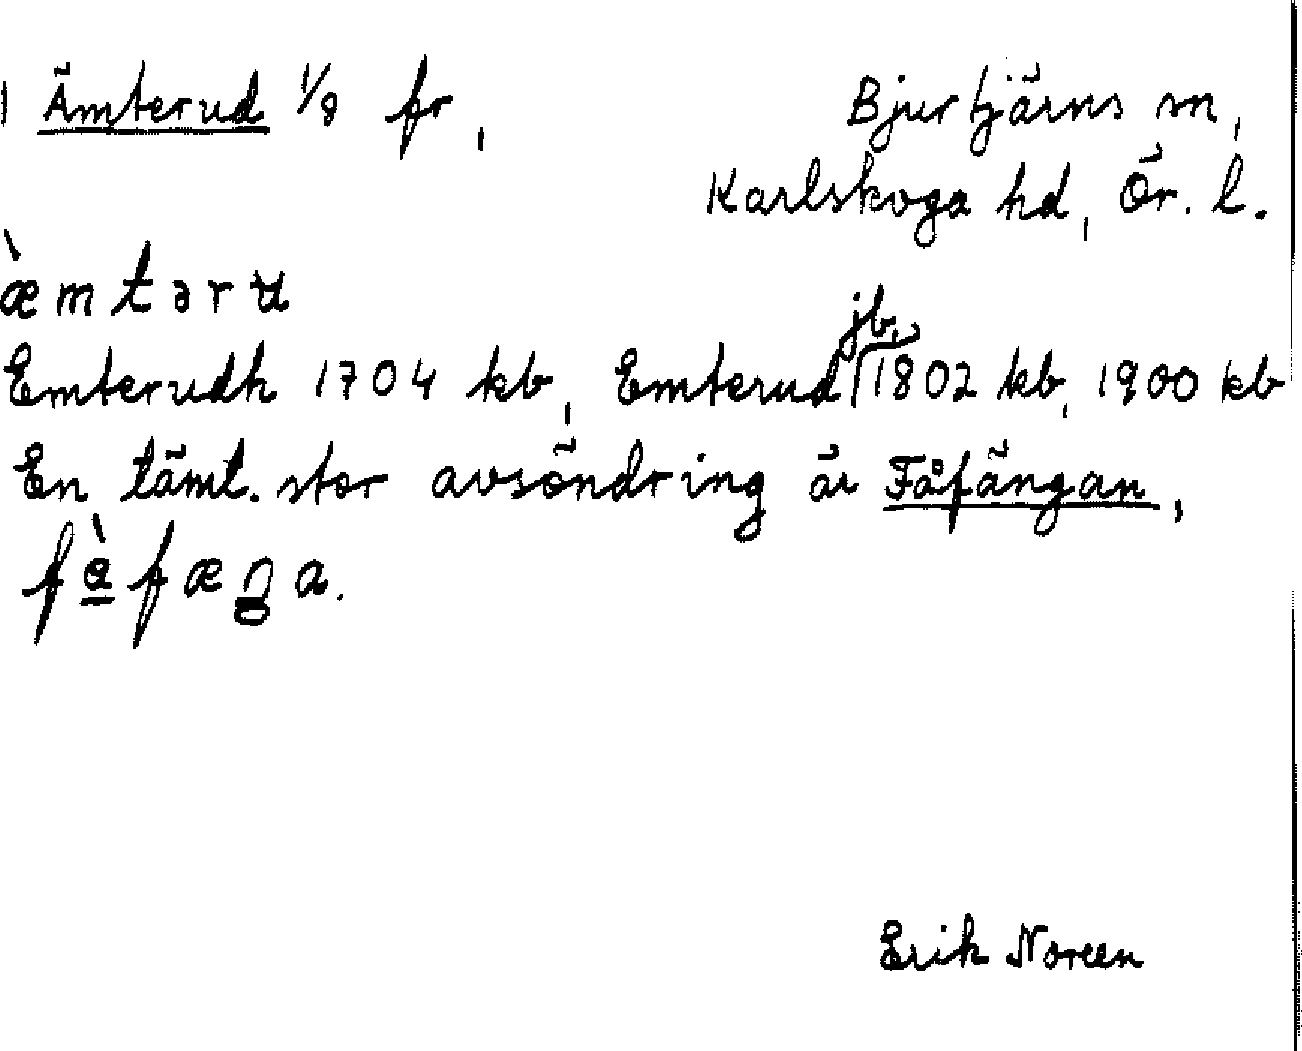 1 Ämterud 1/8 fr, Bjurtjärns sn,
Karlskoga hd, Ör. l.
æ̀mtəru
jb,
Emterudh 1704 kb, Emterud 1802 kb, 1900 kb
En täml. stor avsöndring är Fåfängan,
fà̱fæŋa.
Erik Noreen